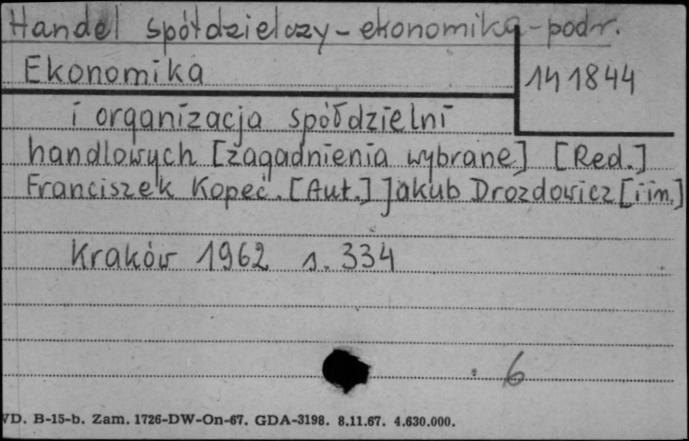 Handel spółdzielczy - ekonomika - podr.
Ekonomika
141844
i organizacja spółdzielni
handlowych [zagadnienia wybrane] [Red.]
Franciszek Kopeć. [Aut.] Jakub Drozdowicz [i in.]
Kraków 1962 s. 334
6
VD. B-15-b. Zam. 1726-DW-On-67. GDA-3198. 8.11.67. 4.630.000.